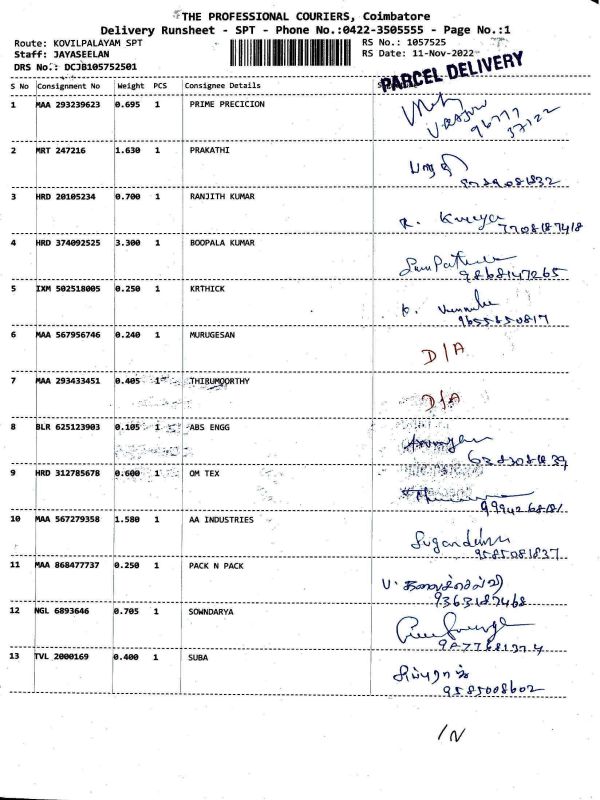 THE PROFESSIONAL COURIERS, Coimbatore
Delivery Runsheet - SPT - Phone No.:0422-3505555 - Page No.:1
Route: KOVILPALAYAM SPT RS No.: 1057525
Staff: JAYASEELAN RS Date: 11-Nov-2022
DRS No.: DCJB105752501
PARCEL DELIVERY
S No Consignment No Weight PCS Consignee Details
1 MAA 293239623 0.695 1 PRIME PRECICION
2 MRT 247216 1.630 1 PRAKATHI
3 HRD 20105234 0.700 1 RANJITH KUMAR
7708187418
4 HRD 374092525 3.300 1 BOOPALA KUMAR
9868147265
5 IXM 502518005 0.250 1 KRTHICK
9655650817
6 MAA 567956746 0.240 1 MURUGESAN
D/A
7 MAA 293433451 0.405 1 THIRUMOORTHY
D/A
8 BLR 625123903 0.105 1 ABS ENGG
9 HRD 312785678 0.600 1 OM TEX
10 MAA 567279358 1.580 1 AA INDUSTRIES
9585081837
11 MAA 868477737 0.250 1 PACK N PACK
9363187468
12 NGL 6893646 0.705 1 SOWNDARYA
13 TVL 2000169 0.400 1 SUBA
9585008602